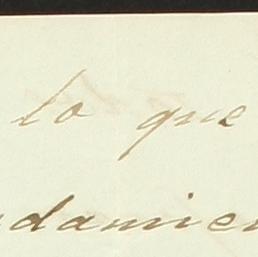 lo que
ndamien